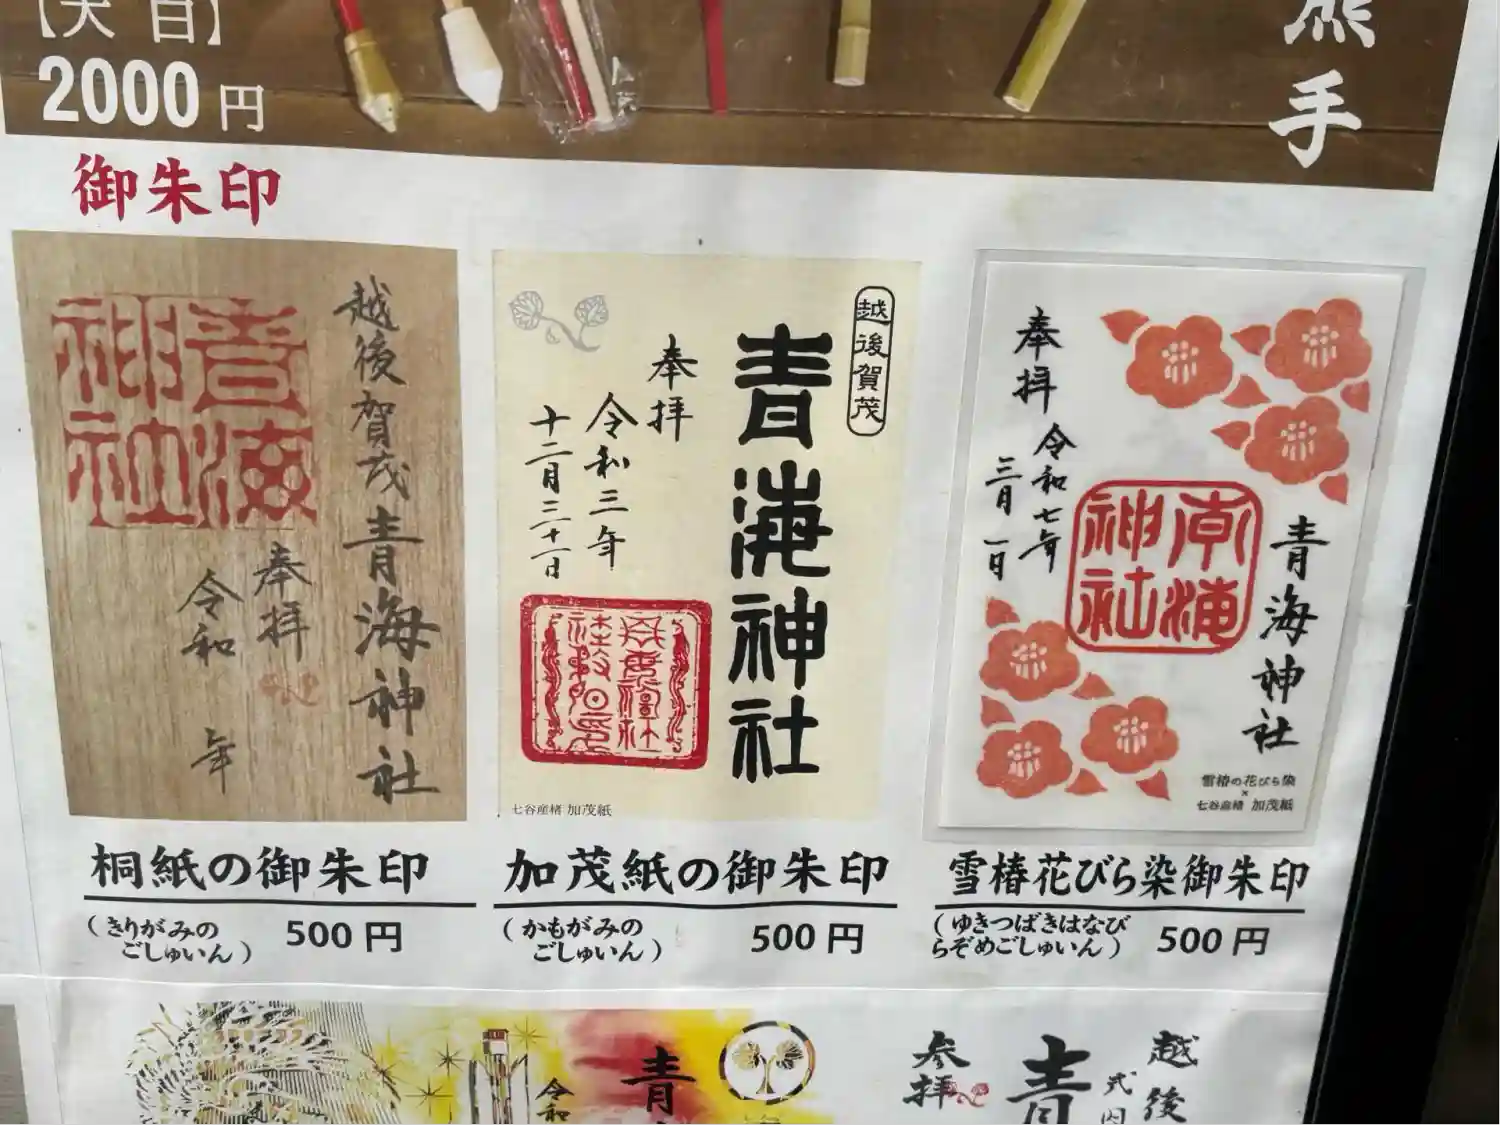 【大 白】
2000 円
熊手
御朱印
越後賀茂 青海神社
奉拝
令和 年
青海神社
越後賀茂
青海神社
奉拝
令和三年
十二月三十一日
七谷産楮 加茂紙
奉拝
令和七年
三月一日
青海神社
青海神社
雪椿の花びら染
×
七谷産楮 加茂紙
桐紙の御朱印
(きりがみの
ごしゅいん)
500 円
加茂紙の御朱印
(かもがみの
ごしゅいん)
500 円
雪椿花びら染御朱印
(ゆきつばきはなび
らぞめごしゅいん)
500 円
令和
青
越後
式内
青
参拝